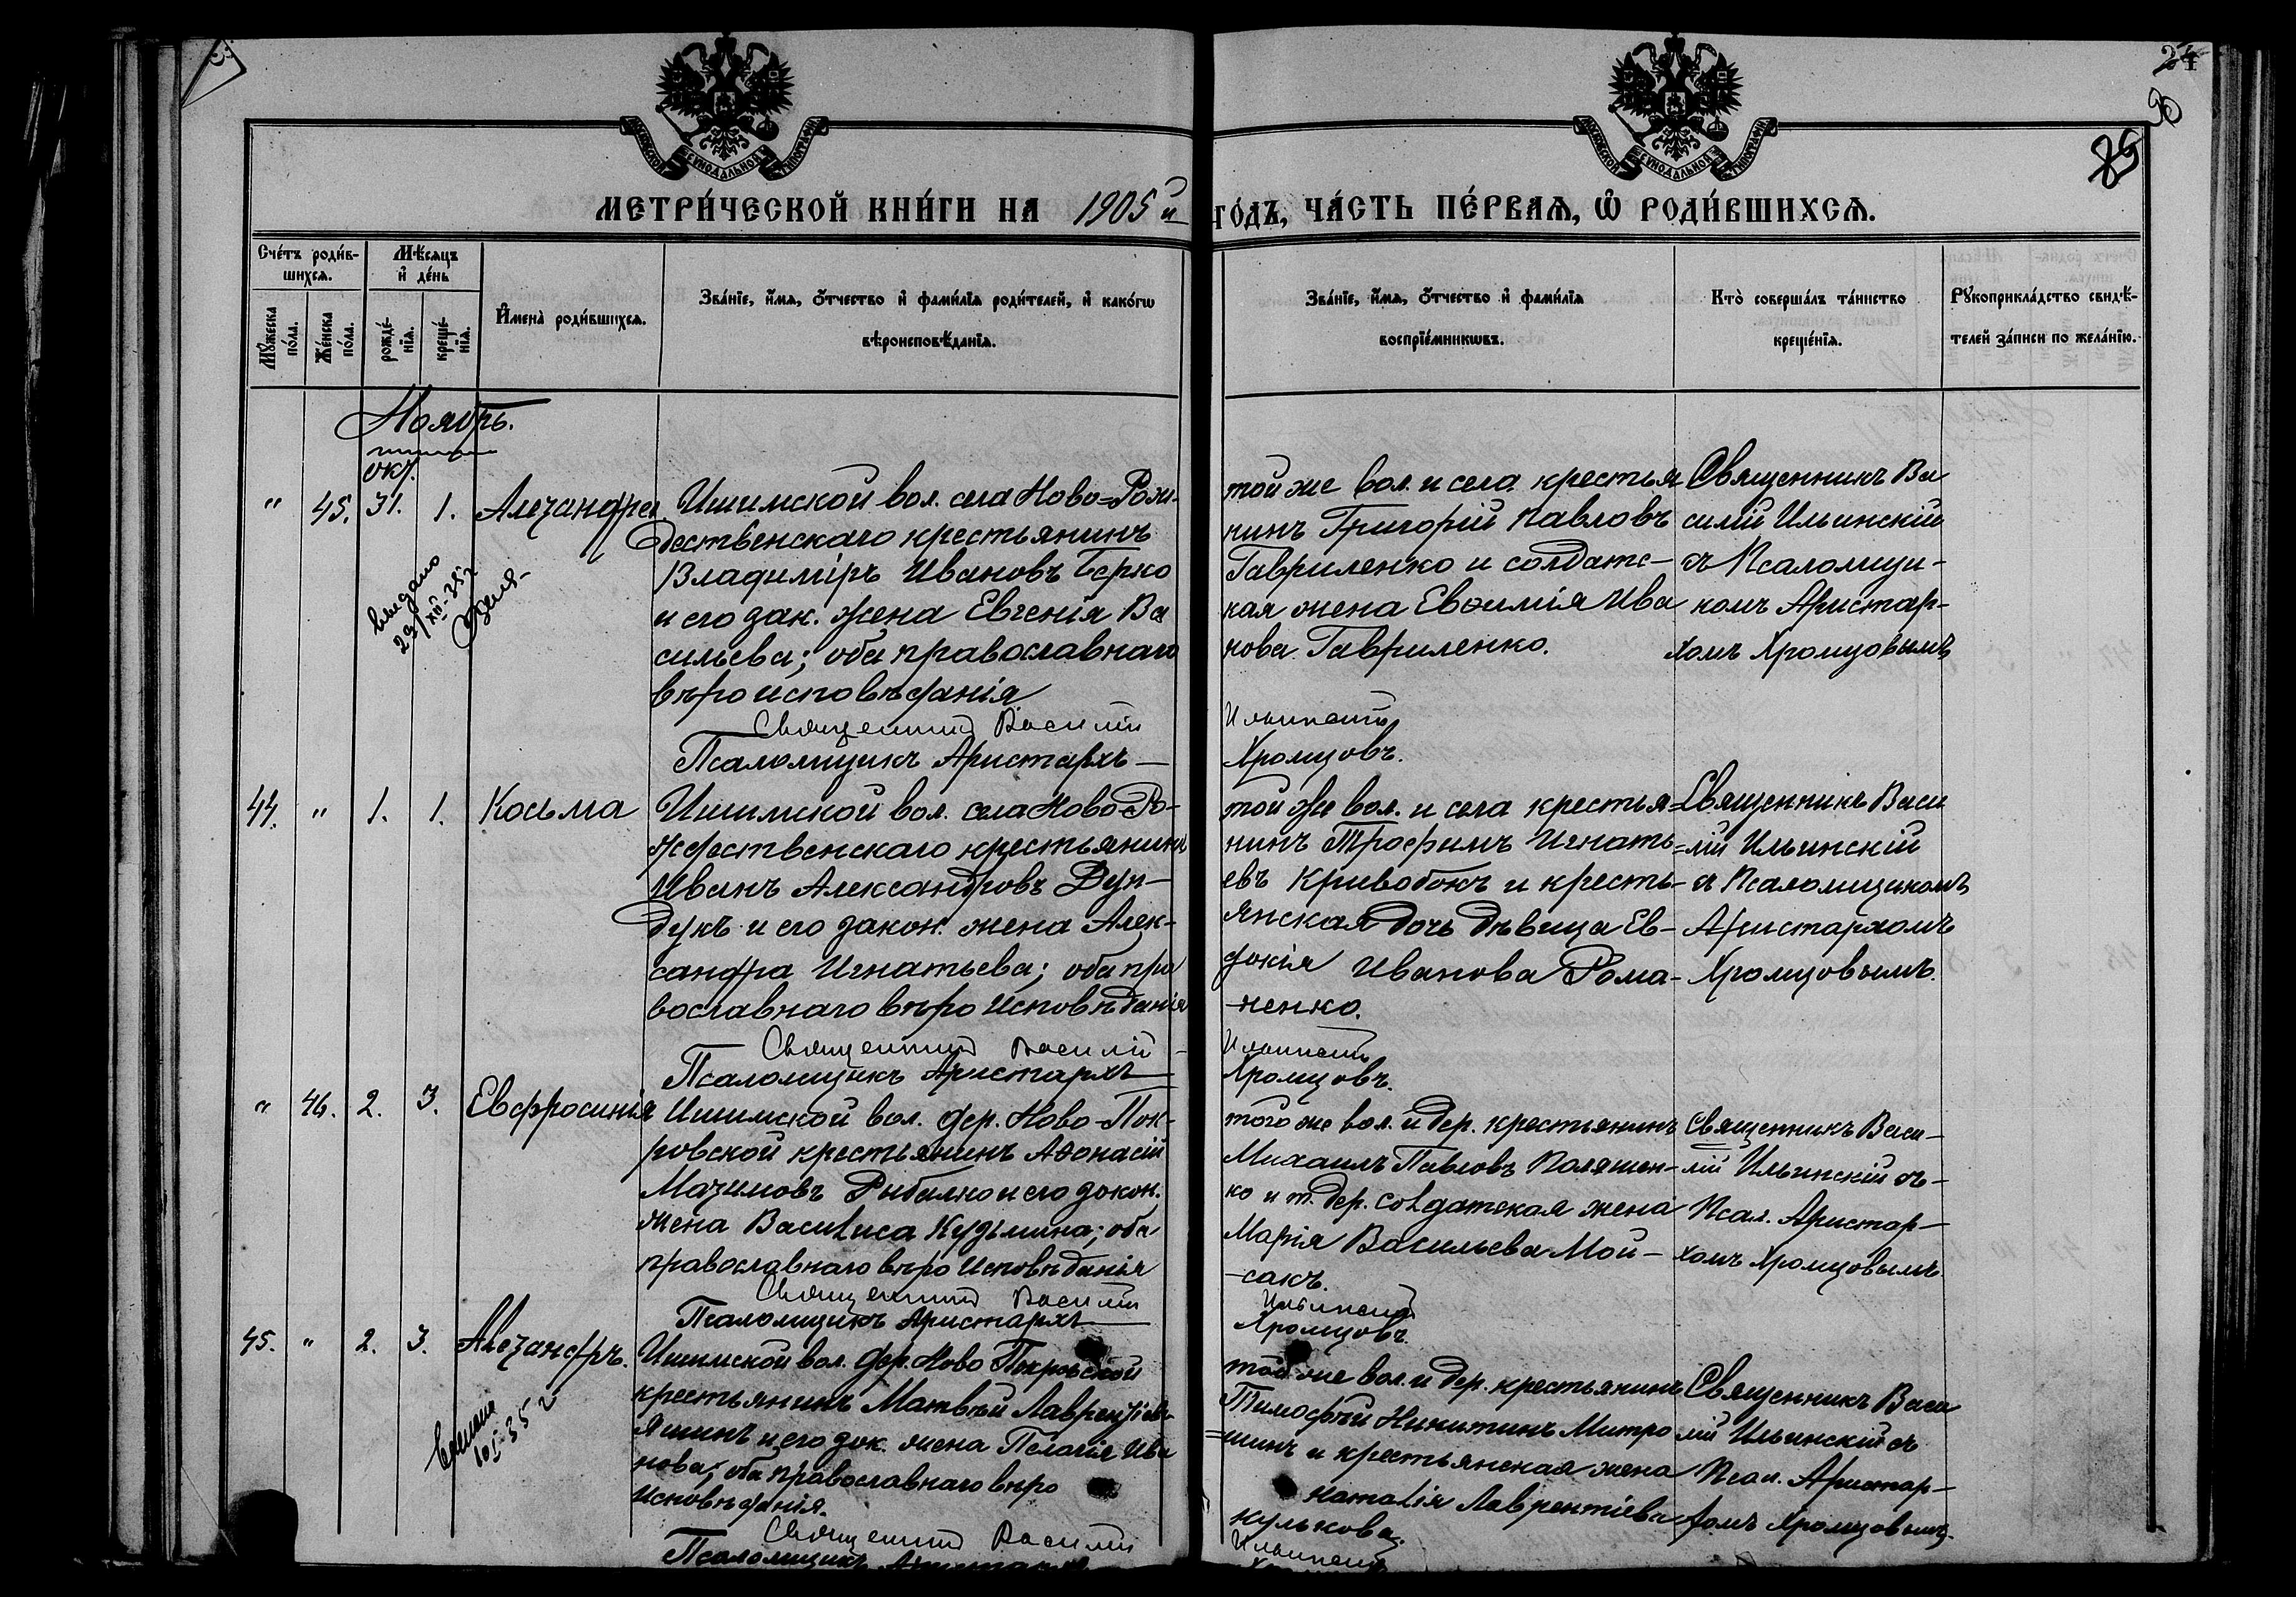 24
85
МОСКОВСКОЙ СѴНОДАЛЬНОЙ ТИПОГРАФІИ
МОСКОВСКОЙ СѴНОДАЛЬНОЙ ТИПОГРАФІИ
МЕТРИ́ЧЕСКОЙ КНИ́ГИ НА 1905й
ГО́ДЪ, ЧА́СТЬ ПЕ́РВАѦ, Ѡ҆ РОДИ́ВШИХСѦ.
Сче́тъ роди́в-
шихсѧ.
Мꙋ́жеска по́ла.
Же́нска по́ла.
Мѣ́сѧцъ
и҆ де́нь
рожде́-
нїѧ.
креще́-
нїѧ.
И҆мена̀ роди́вшихсѧ.
Зва́нїе, и҆́мѧ, ѻ҆́тчество и҆ фами́лїѧ роди́телей, и҆ како́гѡ
вѣроисповѣ́данїѧ.
Зва́нїе, и҆́мѧ, ѻ҆́тчество и҆ фами́лїѧ
воспрїе́мникѡвъ.
Кто̀ соверша́лъ та́инство
креще́нїѧ.
Рꙋкоприкла́дство свидѣ́-
телей за́писи по жела́нїю.
Ноябрь.
окт.
" 45. 31. 1. Алезандра
выдано
29/XII-35 г
Ишимской вол. села Ново=Рож-
дественскаго крестьянинъ
Владиміръ Ивановъ Берко
и его зак. жена Евгенія Ва
сильева; оба православнаго
вѣроисповѣданія
Священникъ Василій
Псаломщикъ Аристархъ —
той же вол. и села крестья
нинъ Григорій Павловъ
Гавриленко и солдатс-
кая жена Евѳимія Ива
нова Гавриленко.
Ильинскій
Хромцовъ.
Священникъ Ва
силій Ильинскій
съ Псаломщи-
комъ Аристар-
хомъ Хромцовымъ
44. " 1. 1. Косьма
Ишимской вол. села Ново-Ро-
ждественскаго крестьянинъ
Иванъ Александровъ Дун-
дукъ и его закон. жена Алек-
сандра Игнатьева; оба пра
вославнаго вѣро исповѣданія
Священникъ Василій
Псаломщикъ Аристархъ
той же вол. и села крестья=
нинъ Трофимъ Игнать=
евъ Кривобокъ и кресть-
янская дочь дѣвица Ев-
докія Иванова Рома-
-ненко.
Ильинскій
Хромцовъ.
Священникъ Васи
лій Ильинскій
съ Псаломщикомъ
Аристархомъ
Хромцовымъ.
" 46. 2. 3. Евфросинія
Ишимской вол. дер. Ново-Пок-
ровской крестьянинъ Аѳонасій
Мазимовъ Рыбалко и его закон.
жена Василиса Кузьмина; оба
православнаго вѣро исповѣданія
Священникъ Василій
Псаломщикъ Аристархъ
того же вол. и дер. крестьянинъ
Михаилъ Павловъ Поляшен-
ко и т. дер. солдатская жена
Марія Васильева Мой-
-сакъ.
Ильинскій
Хромцовъ.
Священникъ Васи-
лій Ильинскій съ-
Псал. Аристар-
хомъ Хромцовымъ
45. " 2. 3. Алезандръ.
Ишимской вол. дер. Ново Покровской
крестьянинъ Матвѣй Лаврентіевъ
Яшинъ и его зак. жена Пелагія Ива
нова; оба православнаго вѣро
исповѣданія.
Священникъ Василій
Псаломщикъ Аристархъ
той же вол. и дер. крестьянинъ
Тимофѣй Никитинъ Митро
=шинъ и крестьянская жена
Наталія Лаврентіева
Кулькова.
Ильинскій
Священникъ Васи
лій Ильинскій съ
Псал. Аристар-
хомъ Хромцовымъ